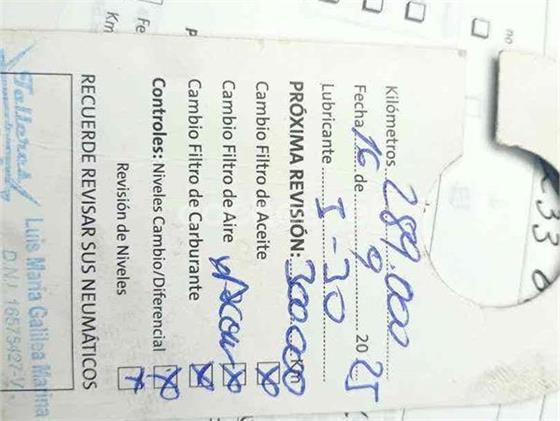 Kilómetros 289.000
Fecha 16 de 9 2025
Lubricante I-30
PRÓXIMA REVISIÓN: 300000 Km
Cambio Filtro de Aceite X
Cambio Filtro de Aire X
Cambio Filtro de Carburante X
Controles: Niveles Cambio/Diferencial X
Revisión de Niveles X
RECUERDE REVISAR SUS NEUMÁTICOS
Talleres
Luis Maria Galilea Marina
D.N.I. 16575427-V
Fe
Km
no